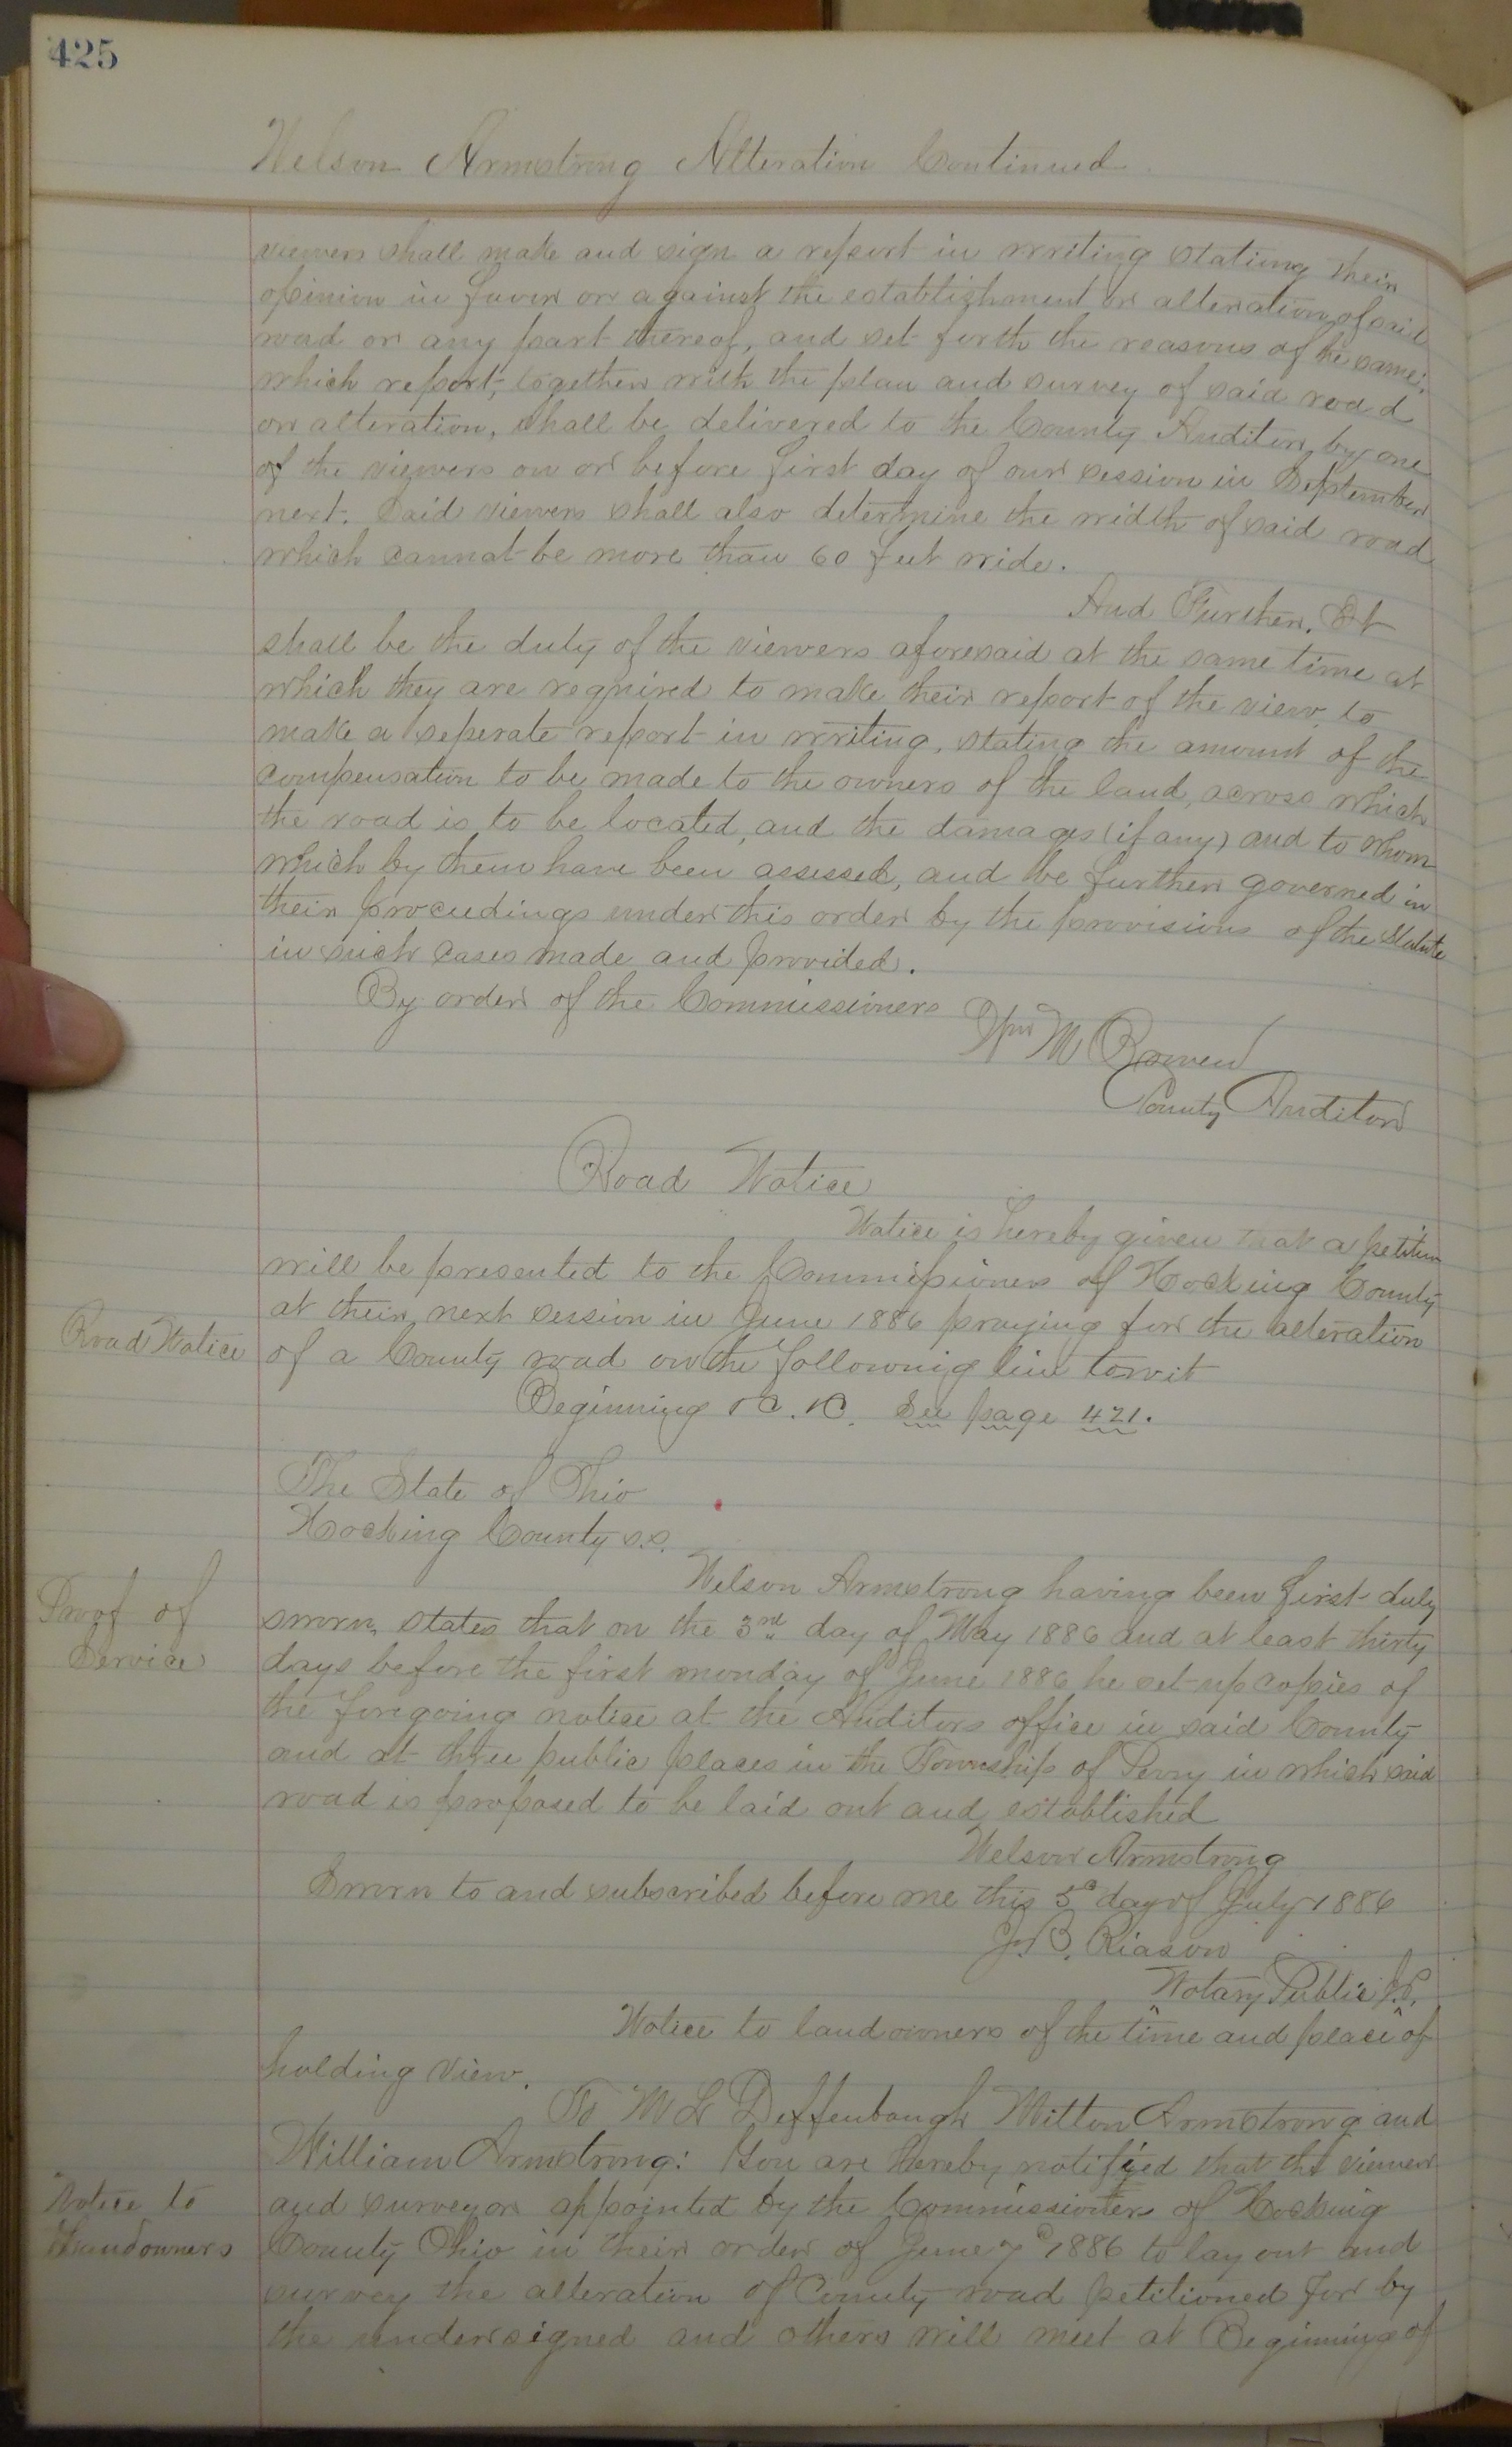 425
Nelson Armstrong Alteration Continued
viewers shall make and sign a report in writing stating their
opinion in favor or against the establishment or alteration of said
road or any part thereof, and set forth the reasons of the same;
which report, together with the plan and survey of said road
or alteration, shall be delivered to the County Auditor, by one
of the viewers on or before first day of our session in September
next. Said viewers shall also determine the width of said road
which cannot be more than 60 feet wide.
And Further, It
shall be the duty of the viewers aforesaid at the same time at
which they are required to make their report of the view, to
make a seperate report in writing, stating the amount of the
compensation to be made to the owners of the land, across which
the road is to be located, and the damages (if any) and to whom
which by them have been assessed, and be further governed in
their proceedings under this order by the provisions of the Statute
in such cases made and provided.
By order of the Commissioners
Wm M Bowen
County Auditor
Road Notice
Notice is hereby given that a petition
will be presented to the Commissioners of Hocking County
at their next session in June 1886 praying for the alteration
Road Notice
of a County road on the following line towit
Beginning &C. &C. See page 421.
The State of Ohio
Hocking County s.s.
Nelson Armstrong having been first duly
Proof of
Service
sworn, states that on the 3rd day of May 1886 and at least thirty
days before the first monday of June 1886 he set up copies of
the foregoing notice at the Auditors office in said County
and at three public places in the Township of Perry in which said
road is proposed to be laid out and established
Nelson Armstrong
Sworn to and subscribed before me this 5th day of July 1886
J. B.
Notary Public
Notice to landowners of the time and place of
holding view.
To M L Deffenbaugh Milton Armstrong and
William Armstrong: You are hereby notified that the viewers
Notice to
Landowners
and surveyor appointed by the Commissioners of Hocking
County Ohio in their order of June 7th 1886 to lay out and
survey the alteration of County road petitioned for by
the undersigned and others will meet at Beginning of